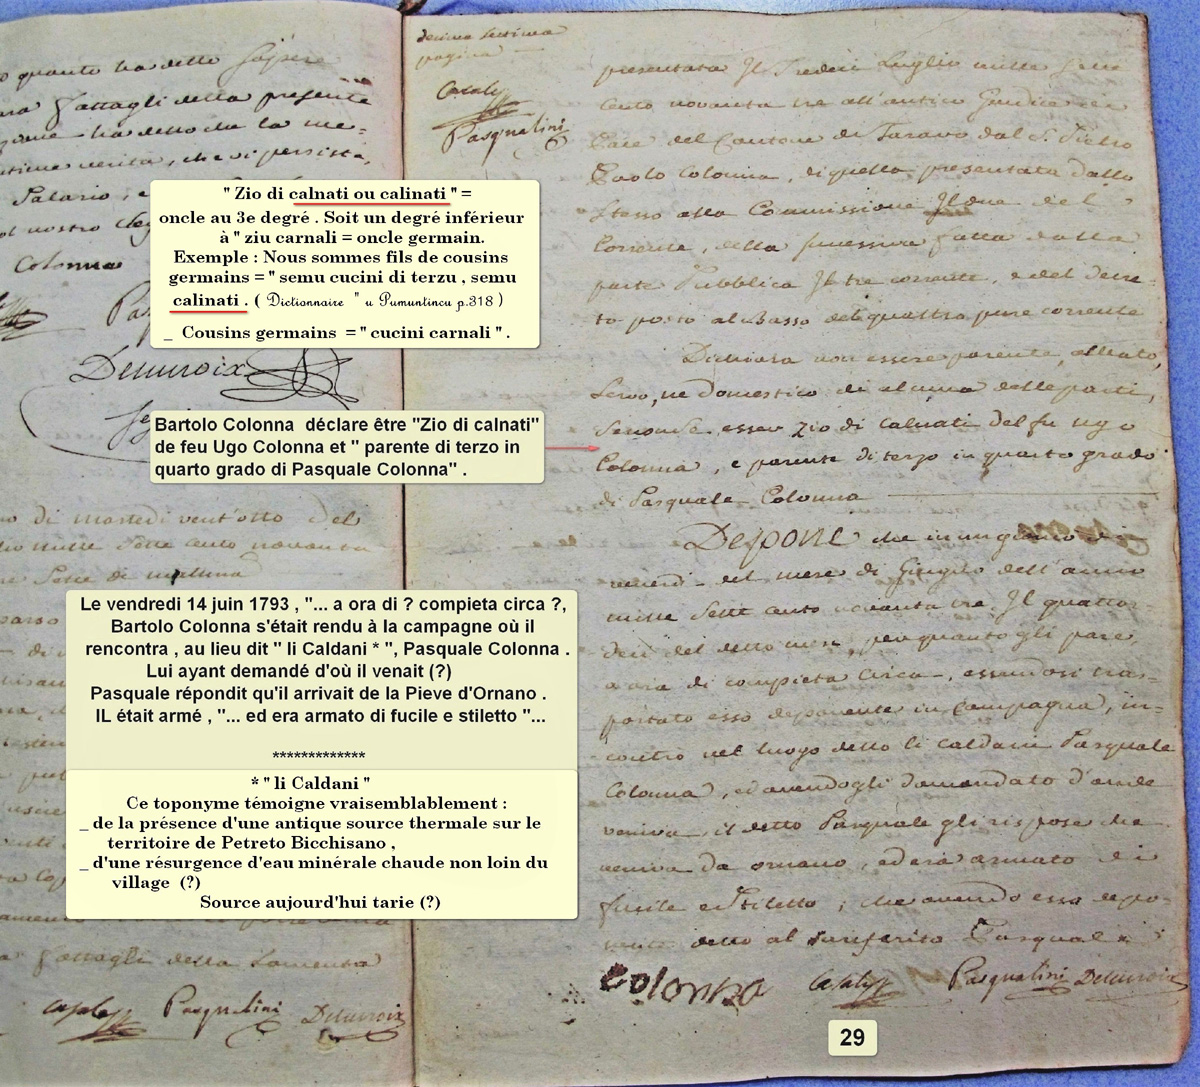 o quanto ha detto
fattagli della presente
ha detto che la me-
verità, che vi persiste,
Salario, e
nostro
Colonna
Demuroix
di martedi vent'otto del
mille sette cento novanta
Sette di mattina
fattagli della
Casale Pasqualini Demuroix
decima settima
pagina
Casale
Pasqualini
presentata Il Tredeci Luglio mille sette
cento novanta tre all'antico Giudice di
Pace del Cantone di Taravo dal S. Pietro
Paolo Colonna, di quella presentata dallo
stesso alla Commissione Il due del
Corrente, della successiva fatta dalla
parte Pubblica Il tre corrente, e del decre-
to posto al Basso del quattro pure corrente
Dichiara non essere parente, alleato,
Servo, ne domestico di alcuna delle parti,
Senonse esser Zio di Calnati del fu Ugo
Colonna, e parente di terzo in quarto grado
di Pasquale Colonna
Depone che in un giorno di
venerdi del mese di Giugno dell'anno
mille sette cento novanta tre, Il quattor-
deci del detto mese, per quanto gli pare
a ora di compieta circa, essendosi tras-
portato esso deponente in Campagna, in-
contro nel luogo detto li Caldani Pasquale
Colonna, ed avendogli domandato d'onde
veniva, il detto Pasquale gli rispose che
veniva da ornano, ed era armato di
fucile e Stiletto; che avendo esso depo-
nente detto al surriferito Pasquale
Colonna Casale Pasqualini Demuroix
" Zio di calnati ou calinati " =
oncle au 3e degré . Soit un degré inférieur
à " ziu carnali = oncle germain.
Exemple : Nous sommes fils de cousins
germains = " semu cucini di terzu , semu
calinati . ( Dictionnaire " u Pumuntincu p.318 )
_ Cousins germains = " cucini carnali " .
Bartolo Colonna déclare être "Zio di calnati"
de feu Ugo Colonna et " parente di terzo in
quarto grado di Pasquale Colonna" .
Le vendredi 14 juin 1793 , "... a ora di ? compieta circa ?,
Bartolo Colonna s'était rendu à la campagne où il
rencontra , au lieu dit " li Caldani * ", Pasquale Colonna .
Lui ayant demandé d'où il venait (?)
Pasquale répondit qu'il arrivait de la Pieve d'Ornano .
IL était armé , "... ed era armato di fucile e stiletto "...
*************
* " li Caldani "
Ce toponyme témoigne vraisemblablement :
_ de la présence d'une antique source thermale sur le
territoire de Petreto Bicchisano ,
_ d'une résurgence d'eau minérale chaude non loin du
village (?)
Source aujourd'hui tarie (?)
29